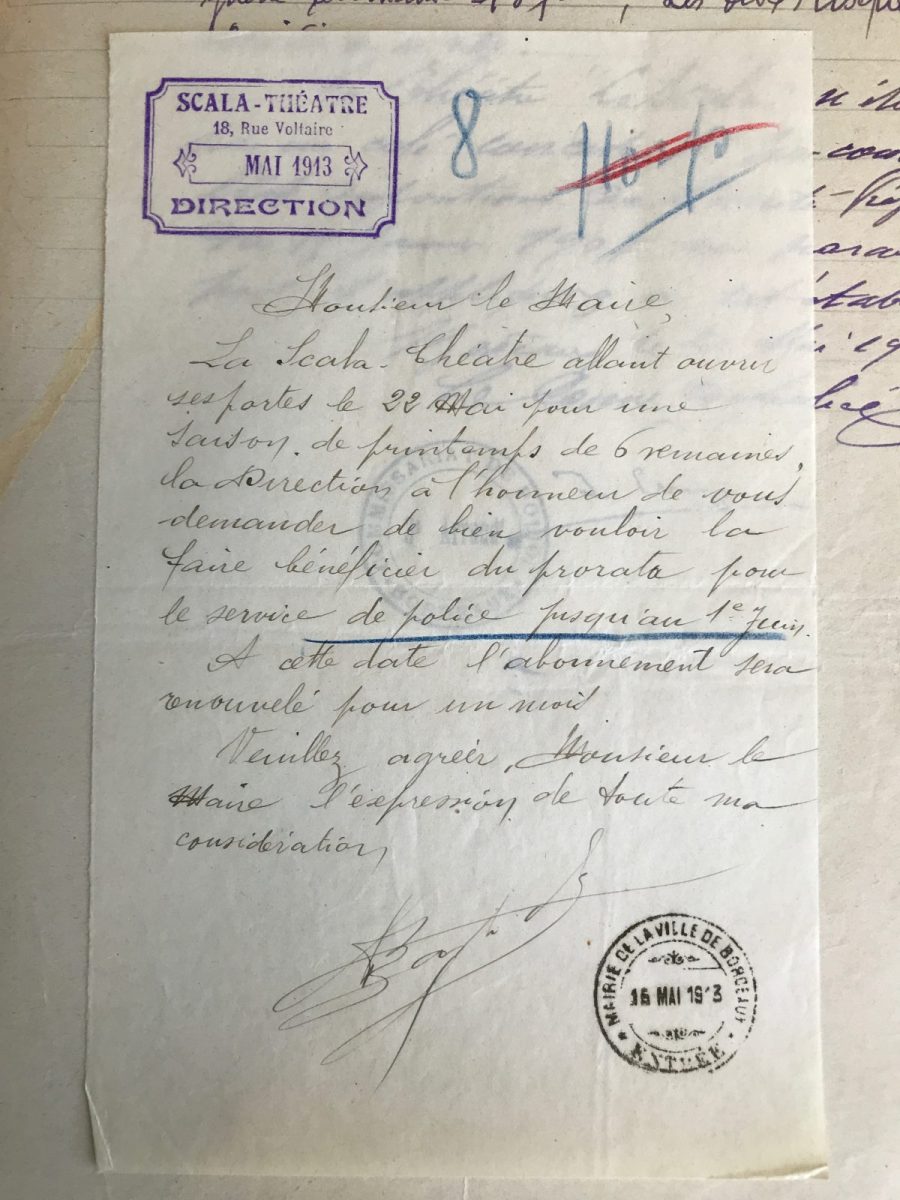 SCALA-THÉATRE
18, Rue Voltaire
MAI 1913
DIRECTION
8
Monsieur le Maire,
La Scala-Théâtre allant ouvrir
ses portes le 22 Mai pour une
saison de printemps de 6 semaines,
la Direction à l'honneur de vous
demander de bien vouloir la
faire bénéficier du prorata pour
le service de police jusqu'au 1e Juin.
A cette date l'abonnement sera
renouvelé pour un mois
Veuillez agréer, Monsieur le
Maire l'expression de toute ma
considération
MAIRIE DE LA VILLE DE BORDEAUX
16 MAI 1913
ENTRÉE